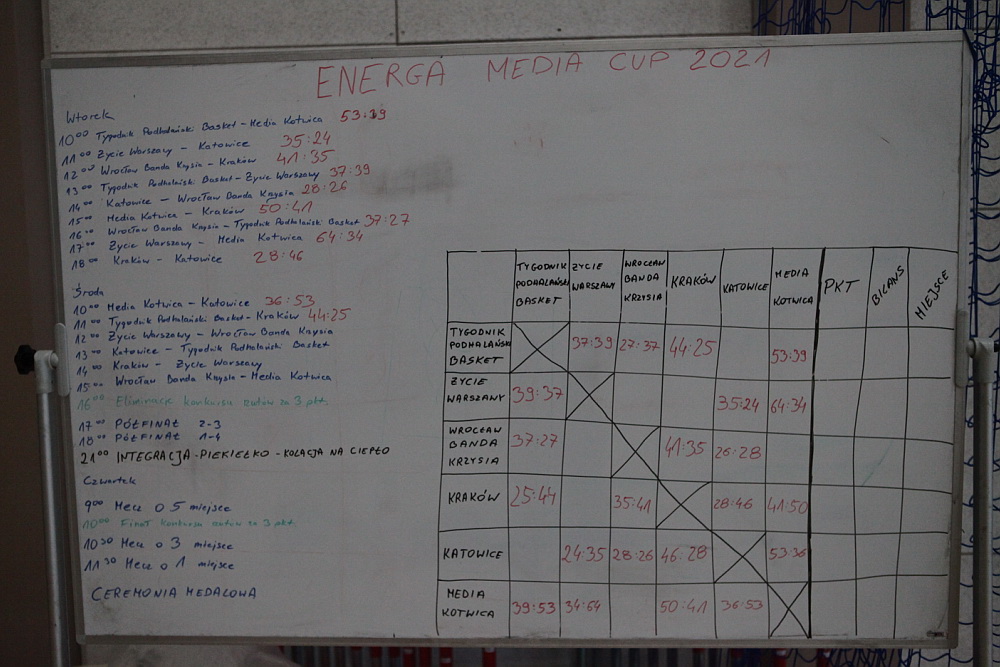 ENERGA MEDIA CUP 2021
Wtorek
10⁰⁰ Tygodnik Podhalański Basket - Media Kotwica 53:39
11⁰⁰ Życie Warszawy - Katowice 35:24
12⁰⁰ Wrocław Banda Krysia - Kraków 41:35
13⁰⁰ Tygodnik Podhalański Basket - Życie Warszawy 37:39
14⁰⁰ Katowice - Wrocław Banda Krysia 28:26
15⁰⁰ Media Kotwica - Kraków 50:41
16⁰⁰ Wrocław Banda Krysia - Tygodnik Podhalański Basket 37:27
17⁰⁰ Życie Warszawy - Media Kotwica 64:34
18⁰⁰ Kraków - Katowice 28:46
Środa
10⁰⁰ Media Kotwica - Katowice 36:53
11⁰⁰ Tygodnik Podhalański Basket - Kraków 44:25
12⁰⁰ Życie Warszawy - Wrocław Banda Krysia
13⁰⁰ Katowice - Tygodnik Podhalański Basket
14⁰⁰ Kraków - Życie Warszawy
15⁰⁰ Wrocław Banda Krysia - Media Kotwica
16⁰⁰ Eliminacje konkursu rzutów za 3 pkt.
17⁰⁰ PÓŁFINAŁ 2-3
18⁰⁰ PÓŁFINAŁ 1-4
21⁰⁰ INTEGRACJA - PIEKIEŁKO - KOLACJA NA CIEPŁO
Czwartek
9⁰⁰ Mecz o 5 miejsce
10⁰⁰ Finał konkursu rzutów za 3 pkt.
10³⁰ Mecz o 3 miejsce
11³⁰ Mecz o 1 miejsce
CEREMONIA MEDALOWA
TYGODNIK PODHALAŃSKI BASKET ŻYCIE WARSZAWY WROCŁAW BANDA KRZYSIA KRAKÓW KATOWICE MEDIA KOTWICA PKT BILANS MIEJSCE
TYGODNIK PODHALAŃSKI BASKET 37:39 27:37 44:25 53:39
ŻYCIE WARSZAWY 39:37 35:24 64:34
WROCŁAW BANDA KRZYSIA 37:27 41:35 26:28
KRAKÓW 25:44 35:41 28:46 41:50
KATOWICE 24:35 28:26 46:28 53:36
MEDIA KOTWICA 39:53 34:64 50:41 36:53